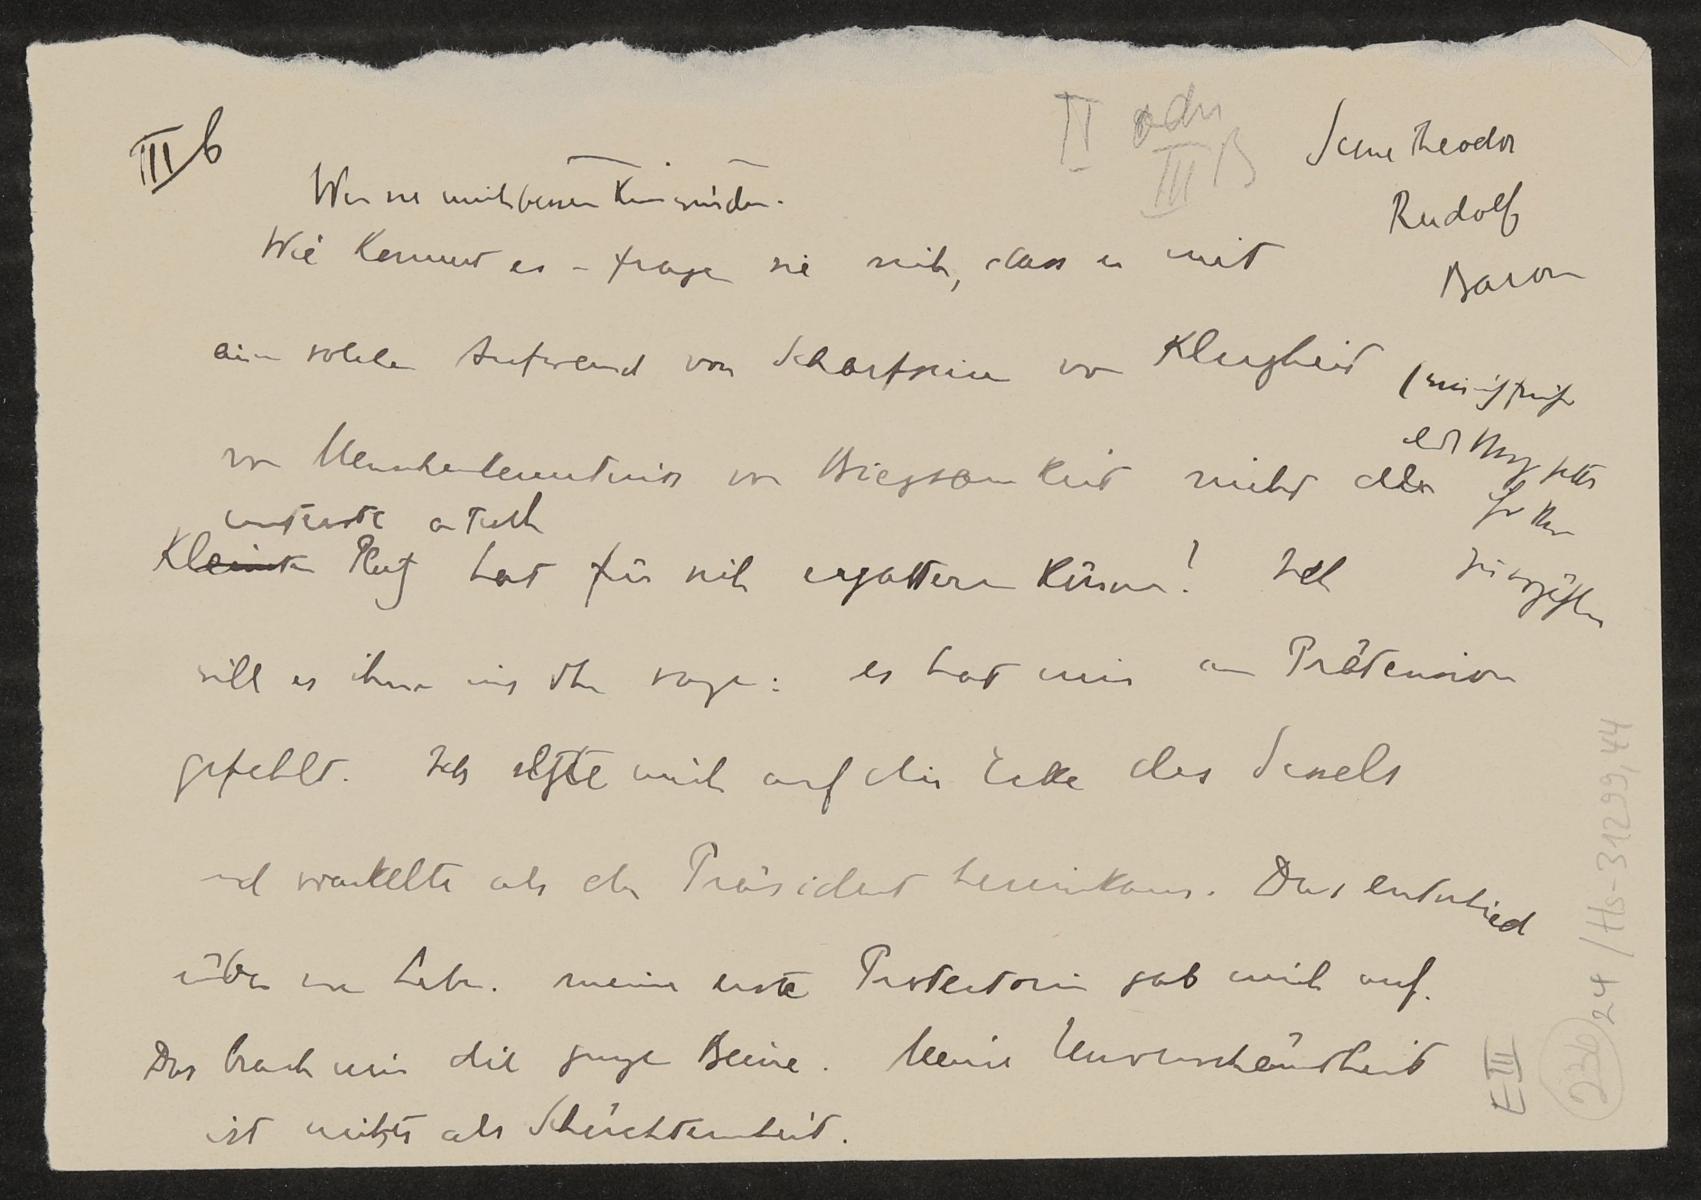 III b
II oder
III B
Scene Theodor
Rudolf
Baron
Wenn sie mich besser kennen würden.
Wie kommt es – fragen sie mich, dass er mit
einem solchen Aufwand von Scharfsinn von Klugheit
von Menschenkenntniss von Biegsamkeit nicht den
untersten a Tisch
Kleinsten Platz hat für sich ergattern können! Ich
will es ihnen ins Ohr sagen: es hat mir an Prätension
gefehlt. Ich setzte mich auf die Ecke des Sessels
und wackelte als der Präsident hereinkam. Das entschied
über mein Leben. meine erste Protectorin gab mich auf.
Das brach mir die jungen Beine. Meine Unverschämtheit
ist nichts als Schüchternheit.
E III
236
24 / Hs-31299,44